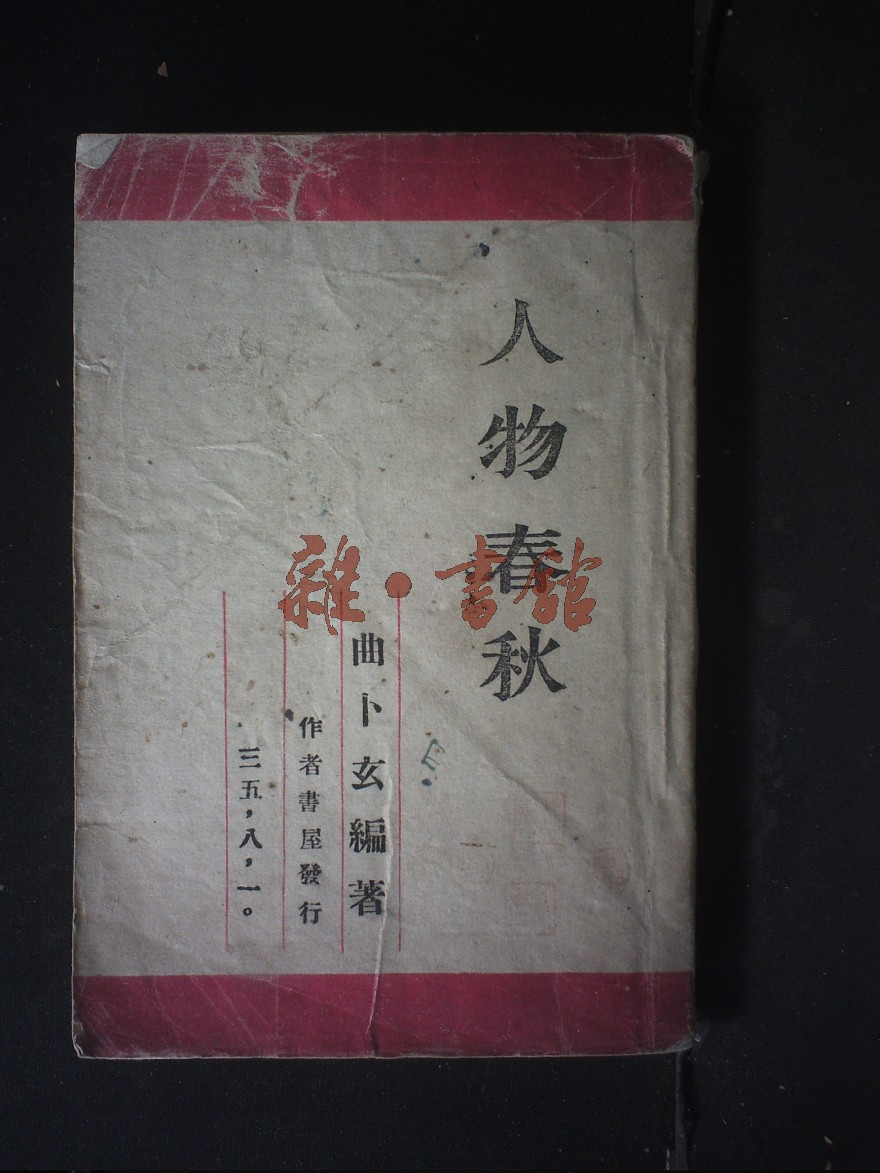 人物春秋
曲卜玄編著
作者書屋發行
三五,八,一。
雜·書館